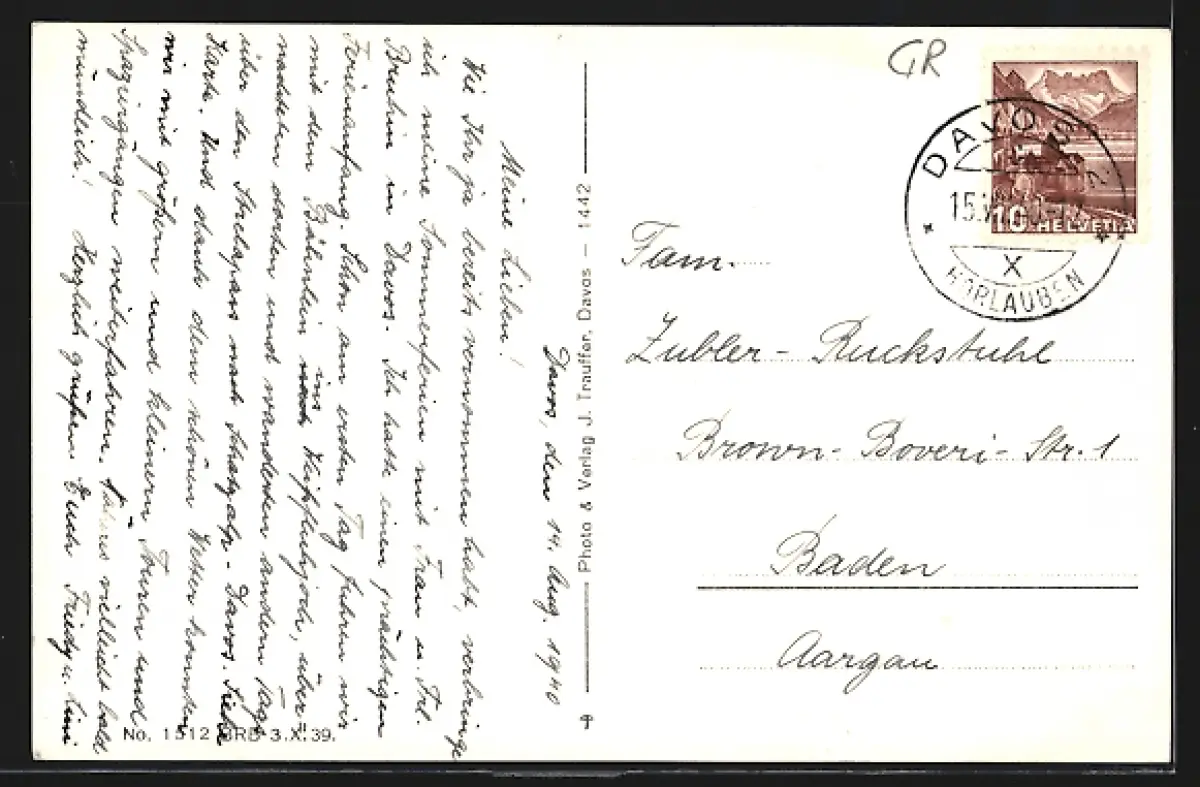 Davos, den 14. Aug. 1940
Meine Lieben!
Wie Ihr ja bereits vernommen habt, verbringe
ich meine Sommerferien mit Frau u. Frl.
in Davos. Ich hatte einen prächtigen
Ferienanfang. Schon am ersten Tag fuhren wir
mit dem Bähnlein ins Weißfluhjoch, über-
nachteten dorten und wanderten andern Tags
über den Strelapass nach Davos. Siehe
Karte. Und dank dem schönen Wetter konnten
wir mit größern und kleinern Touren und
Spaziergängen weiterfahren. vielleicht bald
mündlich! Herzlich grüßen Euch
Photo & Verlag J. Trauffer, Davos – 1442
No. 1512 BRB 3.X.39.
GR
DAVOS
15.
X
HORLAUBEN
10 HELVETIA
Fam.
Zubler - Ruckstuhl
Brown-Boveri-Str. 1
Baden
Aargau